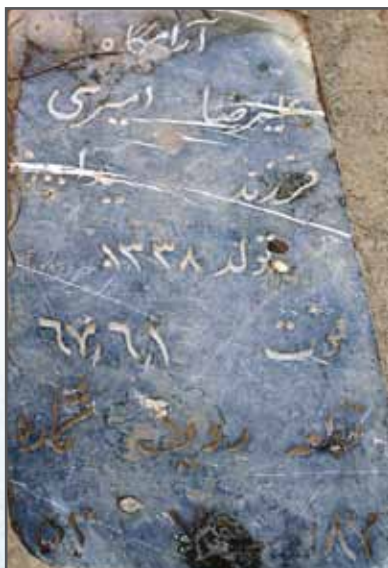 آرامگاه
علیرضا
فرزند
تولد ۱۳۳۸
فوت ۶۷٫۶٫۱
قطعه ردیف شماره
۱۸۲ ۵۳